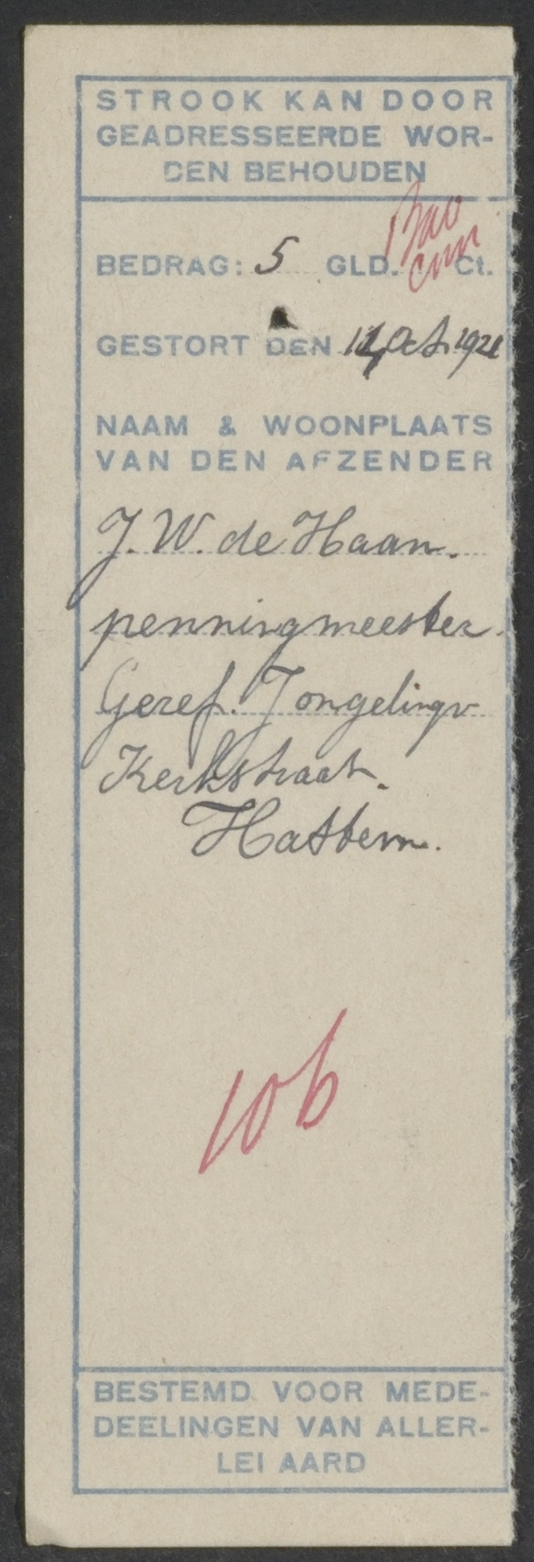 STROOK KAN DOOR
GEADRESSEERDE WOR-
DEN BEHOUDEN
BEDRAG: 5 GLD. Ct.
GESTORT DEN 14 Oct. 1921
NAAM & WOONPLAATS
VAN DEN AFZENDER
J. W. de Haan.
penningmeester.
Geref. Jongelingv
Kerkstraat.
Hattem.
106
BESTEMD VOOR MEDE-
DEELINGEN VAN ALLER-
LEI AARD